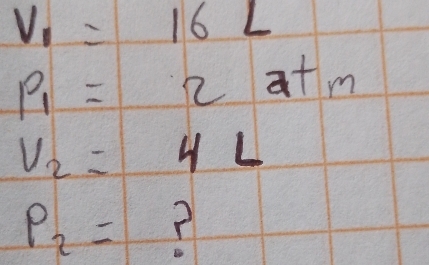 V₁ = 16 L
P₁ = 2 atm
V₂ = 4 L
P₂ = ?